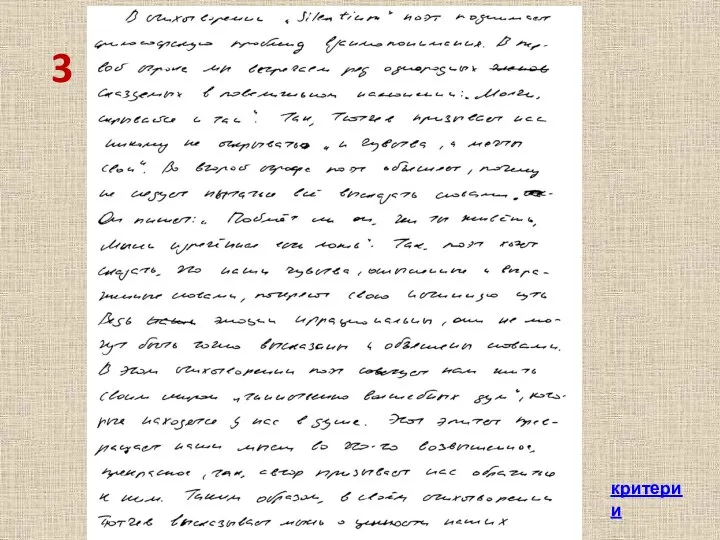 3
В стихотворении „Silentium" поэт поднимает
философскую проблему взаимопонимания. В пер-
вой строке мы встречаем ряд однородных
сказуемых в повелительном наклонении: „Молчи,
скрывайся и таи". Так, Тютчев призывает нас
никому не открывать „и чувства, и мечты
свои". Во второй строфе поэт объясняет, почему
не следует пытаться всё высказать словами.
Он пишет: „Поймёт ли он, чем ты живёшь,
Мысль изречённая есть ложь". Так, поэт хочет
сказать, что наши чувства, описанные и выра-
женные словами, потеряют свою истинную суть
Ведь эмоции иррациональны, они не мо-
гут быть точно высказаны и объяснены словами.
В этом стихотворении поэт советует нам жить
своим миром „таинственно волшебных дум", кото-
рые находятся у нас в душе. Этот эпитет прев-
ращает наши мысли во что-то возвышенное,
прекрасное, так, автор призывает нас обратиться
к ним. Таким образом, в своём стихотворении
Тютчев высказывает мысль о ценности наших
критери
и